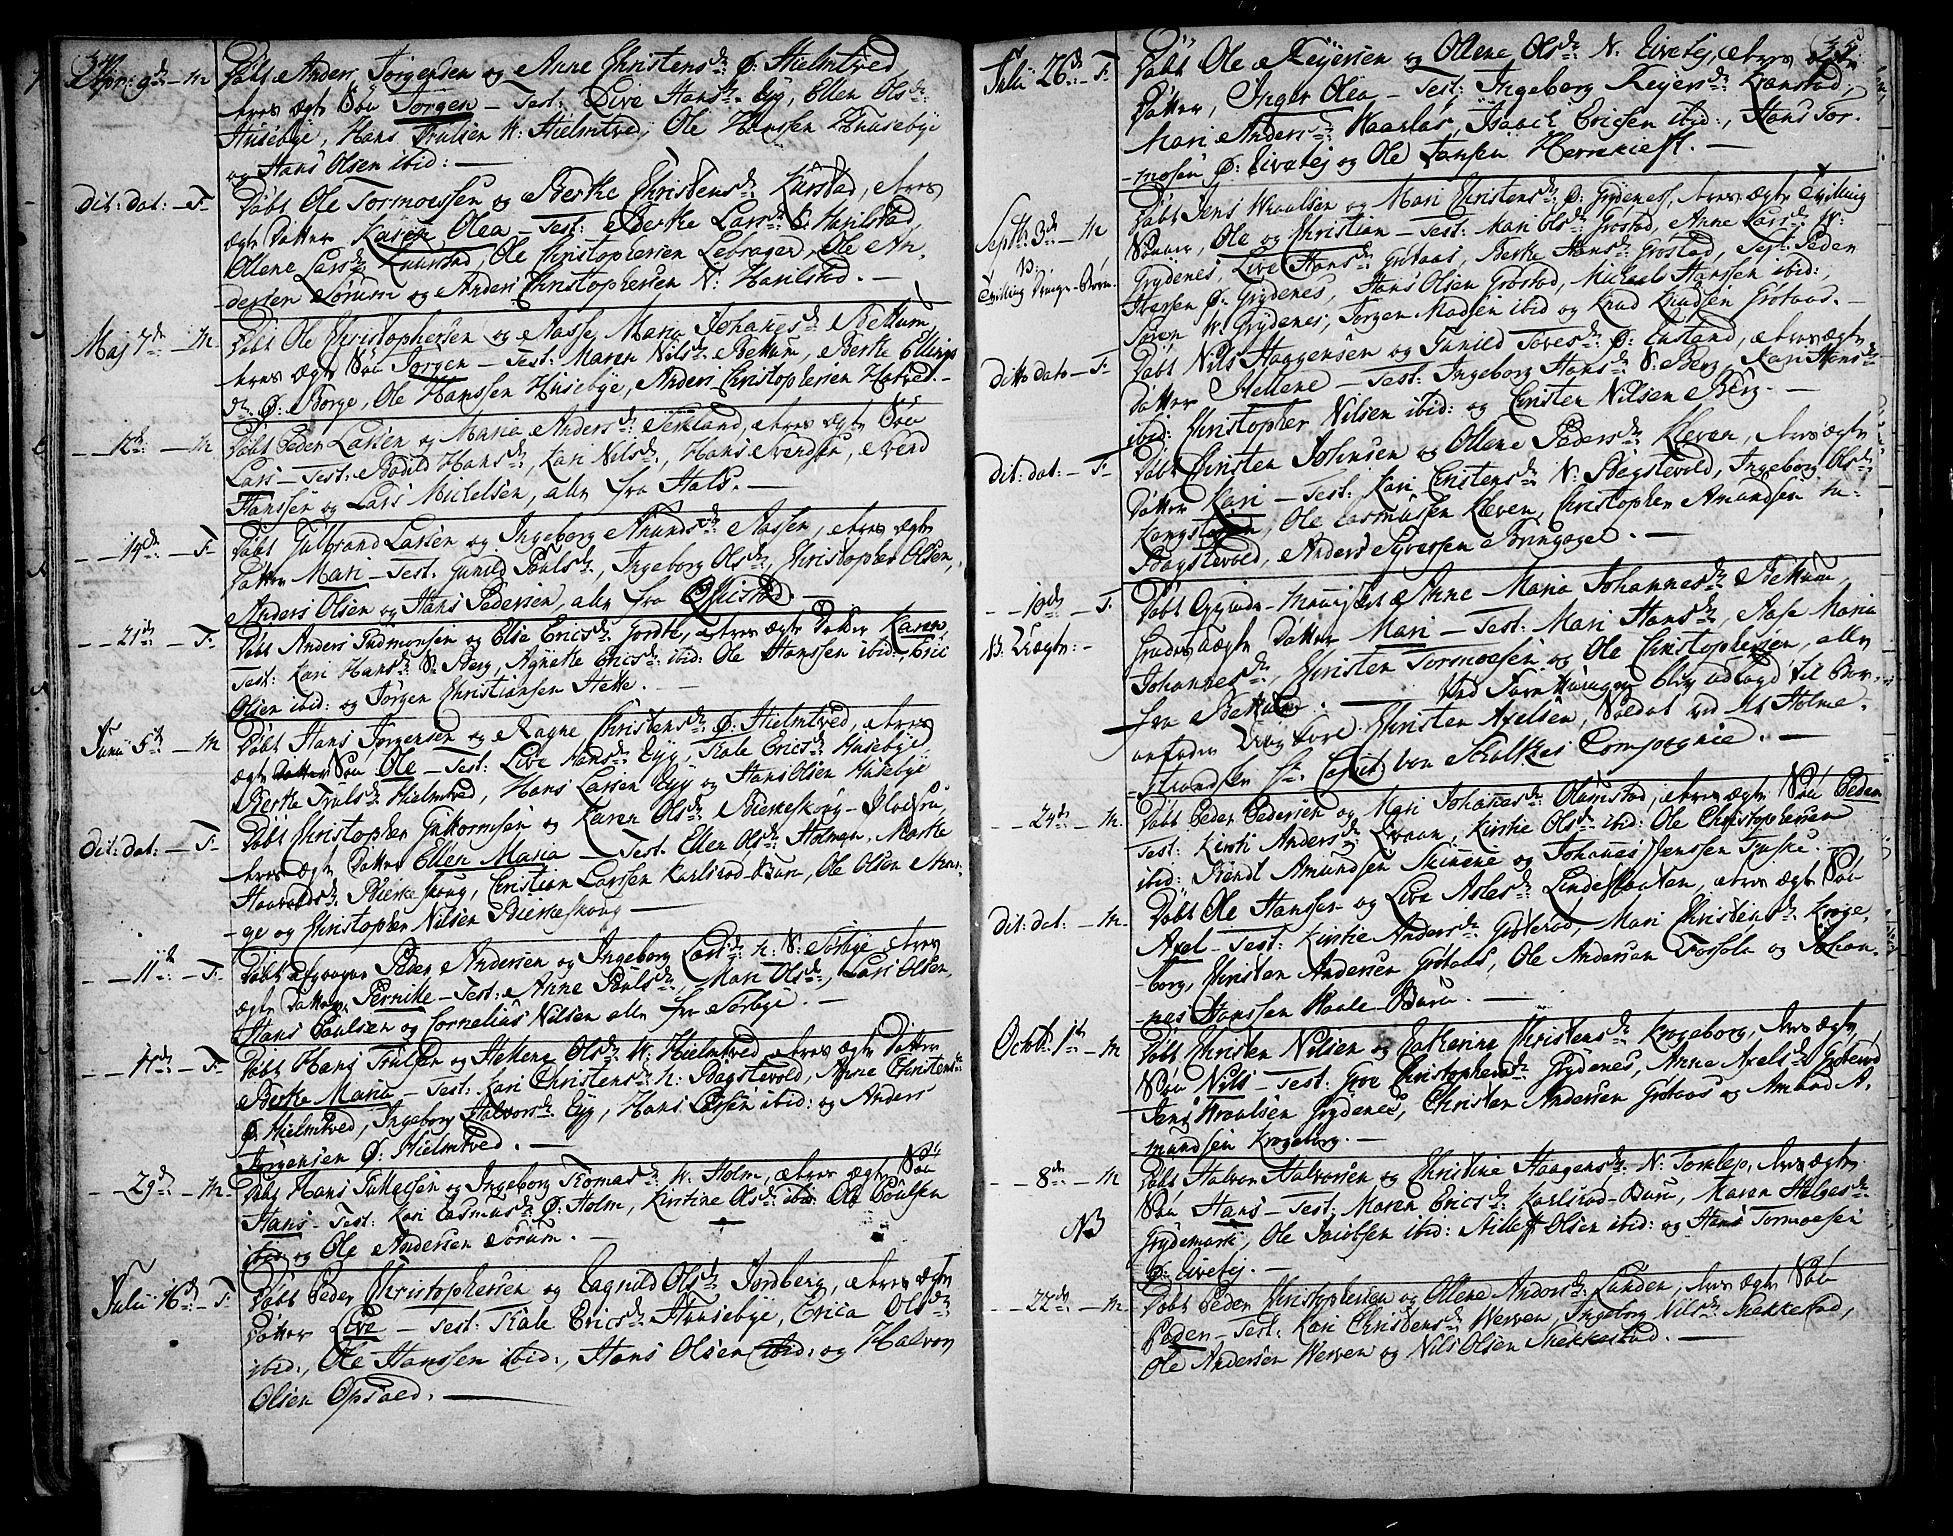 34.
Apr: 9de – M Døbt Anders Jørgensen og Anne Christensdr Ø: Hielmtved,
deres ægte Søn Jørgen – Test: Live Hansdr Eyg, Ellen Olsdr
Husebye, Hans Trulsen W: Hielmtved, Ole Hanssen Husebye
og Hans Olsen ibid: –
Dit: dat: – F. Døbt Ole Tormoessen og Berthe Christensdr Kurstad, deres
ægte Datter Karen Olea – Test: Berthe Larsdr S: Hanilstad,
Ollene Larsdr Kuurstad, Ole Christophersen Lebrager, Ole An-
dersen Sørum og Anders Christophersen N: Hanilstad. –
Maj 7de – M Døbt Ole Christophersen og Aasse Maria Johanesdr Bettum,
deres ægte Søn Jørgen – Test: Maren Nilsdr Bettum, Berthe Ellings
dr Ø: Borge, Ole Hanssen Husebye, Anders Christophersen Hotved. –
– 12de – M Døbt Peder Larsen og Maria Andersdr Terkland, deres ægte Søn
Lars – Test: Bodild Hansdr, Kari Nilsdr, Hans Svendsen, Svend
Hanssen og Lars Michelsen, alle fra Hals. –
– 14de – F. Døbt Gulbrand Larsen og Ingeborg Amundsdr Aassen, deres ægte
Datter Mari – Test: Gunild Poulsdr, Ingeborg Olsdr, Christopher Olsen,
Anders Olsen og Hans Pedersen, alle fra Qvistad. –
– 21de – F. Døbt Anders Gudmonsen og Else Ericsdr Jordte, deres ægte Datter Karen
Test: Kari Hansdr S: Berg, Agnete Ericsdr ibid: Ole Hanssen ibid:, Eric
Olsen ibid: og Jørgen Christiansen Hette. –
Junii 5te – M Døbt Hans Jørgensen og Ragne Christensdr Ø: Hielmtved, deres
ægte Søn Ole – Test: Live Hansdr Eyg, Kale Ericsdr Husebye,
Berthe Trulsdr Hielmtved, Hans Larsen Eyg og Hans Olsen Husebye
Dit: dat: – F. Døbt Christopher Guttormsen og Karen Olsdr Bierkeskoug –
deres ægte Datter Ellen Maria – Test. Ellen Olsdr Holmen, Marthe
Haavoldsdr Bierkeskoug, Christian Larssen Karlsrød-Buru, Ole Olsen Aron-
ge og Christopher Nilsen Bierkeskoug –
– 11te – F. Døbt Peder Andersen og Ingeborg Larsdr N: Sørbye, deres
ægte Datter Pernille – Test: Anne Poulsdr, Mari Olsdr, Lars Olsen,
Hans Poulsen og Cornelius Nilsen alle fra Sørbye. –
– de – F. Døbt Hans Trulsen og Hellene Olsdr W: Hielmtved, deres ægte Datter
Berthe Maria – Test: Kari Christensdr N: Bagstevold, Anne Christensdr
Ø: Hielmtved, Ingeborg Halvorsdr Eyg, Hans Larsen ibid: og Anders
Jørgensen Ø: Hielmtved. –
– 29de – M. Døbt Hans Tullefsen og Ingeborg Tomasdr W: Holm, deres ægte Søn
Hans – Test: Kari Rasmusdr Ø: Holm, Kirstine Olsdr ibid: Ole Poulsen
ibid: og Ole Andersen Sørum. –
Julii 16de – F. Døbt Peder Christophersen og Ragnild Olsdr Jordberg, deres ægte
Datter Live – Test: Kale Ericsdr Husebye, Erica Olsdr
ibid:, Ole Hanssen ibid:, Hans Olsen ibid: og Halvor
Olsen Opsaed. –
35.
Julii 26de – F. Døbt Ole Reyersen og Ollene Olsdr N: Eivetej, deres ægte
Datter, Inger Olea – Test: Ingeborg Reyersdr Kranstad,
Mari Andersdr Waarlos, Isaach Ericsen ibid:, Hans Tor-
mosen Ø: Eivetej og Ole Jansen Hernkieft. –
Septbr 3de – M Døbt Jens Wraalsen og Mari Christensdr Ø: Grydenes, deres ægte Tvilling
Sønner, Ole og Christian – Test: Mari Olsdr Grøstad, Anne Larsdr W:
Tvilling Drenge-Børn Grydenes, Live Hansdr Grøtaas, Berthe Hansdr Grøstad, Test: Peder
Iversen Ø: Grydenes, Hans Olsen Grøstad, Michael Hanssen ibid:,
Søren W: Grydenes, Jørgen Madsen ibid og Knud Knudsen Grøtaas. –
Ditto dato – F. Døbt Nils Haggensen og Gunild Tovesdr Ø: Enstand, deres ægte
Datter Hellene – Test: Ingeborg Hansdr S: Berg, Kari Hansdr
ibid: Christopher Nilsen ibid: og Christen Nilsen Berg. –
Dit: dat: – F. Døbt Christen Johnsen og Ollene Pedersdr Kleven, deres ægte
Datter Kari – Test: Kari Christensdr N: Bagstevold, Ingeborg Olsdr
Kongstagen, Ole Rasmusen Kleven, Christopher Amundsen N:
Bagstevold, Anders Syversen Bringagel. –
– 10de – F. Døbt Anne Maria Johannesdr Bettum,
N: Uægte: – hendes uægte Datter Mari – Test: Mari Hansdr, Aase Maria
Johannesdr, Christen Tormoesen og Ole Christophersen, alle
fra Bettum. – Ved Forretningen blev udlagd til Barne-
fader Ung Karl Christen Axelsen, Soldat ved Holme-
strandske Capit: von Stulkes Compagnie. –
– 24de – M. Døbt Peder Pedersen og Mari Johanesdr Olumstad, deres ægte Søn Peder
Test: Kirsti Andersdr Evaan, Kirstie Olsdr ibid: Ole Christophersen
ibid: Trendt Amundsen Skinene og Johanes Jenssen Fuske. –
Dit: dat: – M. Døbt Ole Hanssen og Live Axlesdr Lindeskouten, deres ægte Søn
Axel – Test: Kirstie Andersdr Gisterød, Mari Christensdr Kroge-
borg, Christen Andersen Grøtaas, Ole Andersen Fossole og Johan-
nes Hanssen Haale-Buru. –
Octobr 1te – M Døbt Christen Nilsen og Catherine Christensdr Krogeborg, deres ægte
Søn Nils – Test: Goe Christophersdr Grydenes, Anne Axelsdr Gisterød
Jens Wraalsen Grydenes, Christen Andersen Grøtaas og Amund A-
mundsen Krogeborg. –
– 8de – M Døbt Halvor Halvorsen og Christine Haagensdr N: Torelep, deres ægte
NB Søn Hans – Test: Maren Ericsdr Karlsrød-Buru, Maren Helgesdr
Grydemark, Ole Jacobsen ibid: Olsen ibid: og Hans Tormoesen
Ø: Eivetej. –
– 22de – M Døbt Peder Christophersen og Ollene Andersdr Lunden, deres ægte Søn
Peder – Test: Kari Christensdr Werven, Ingeborg Nilsdr Snekkestad,
Ole Andersen Werven og Nils Olsen Snekkestad. –